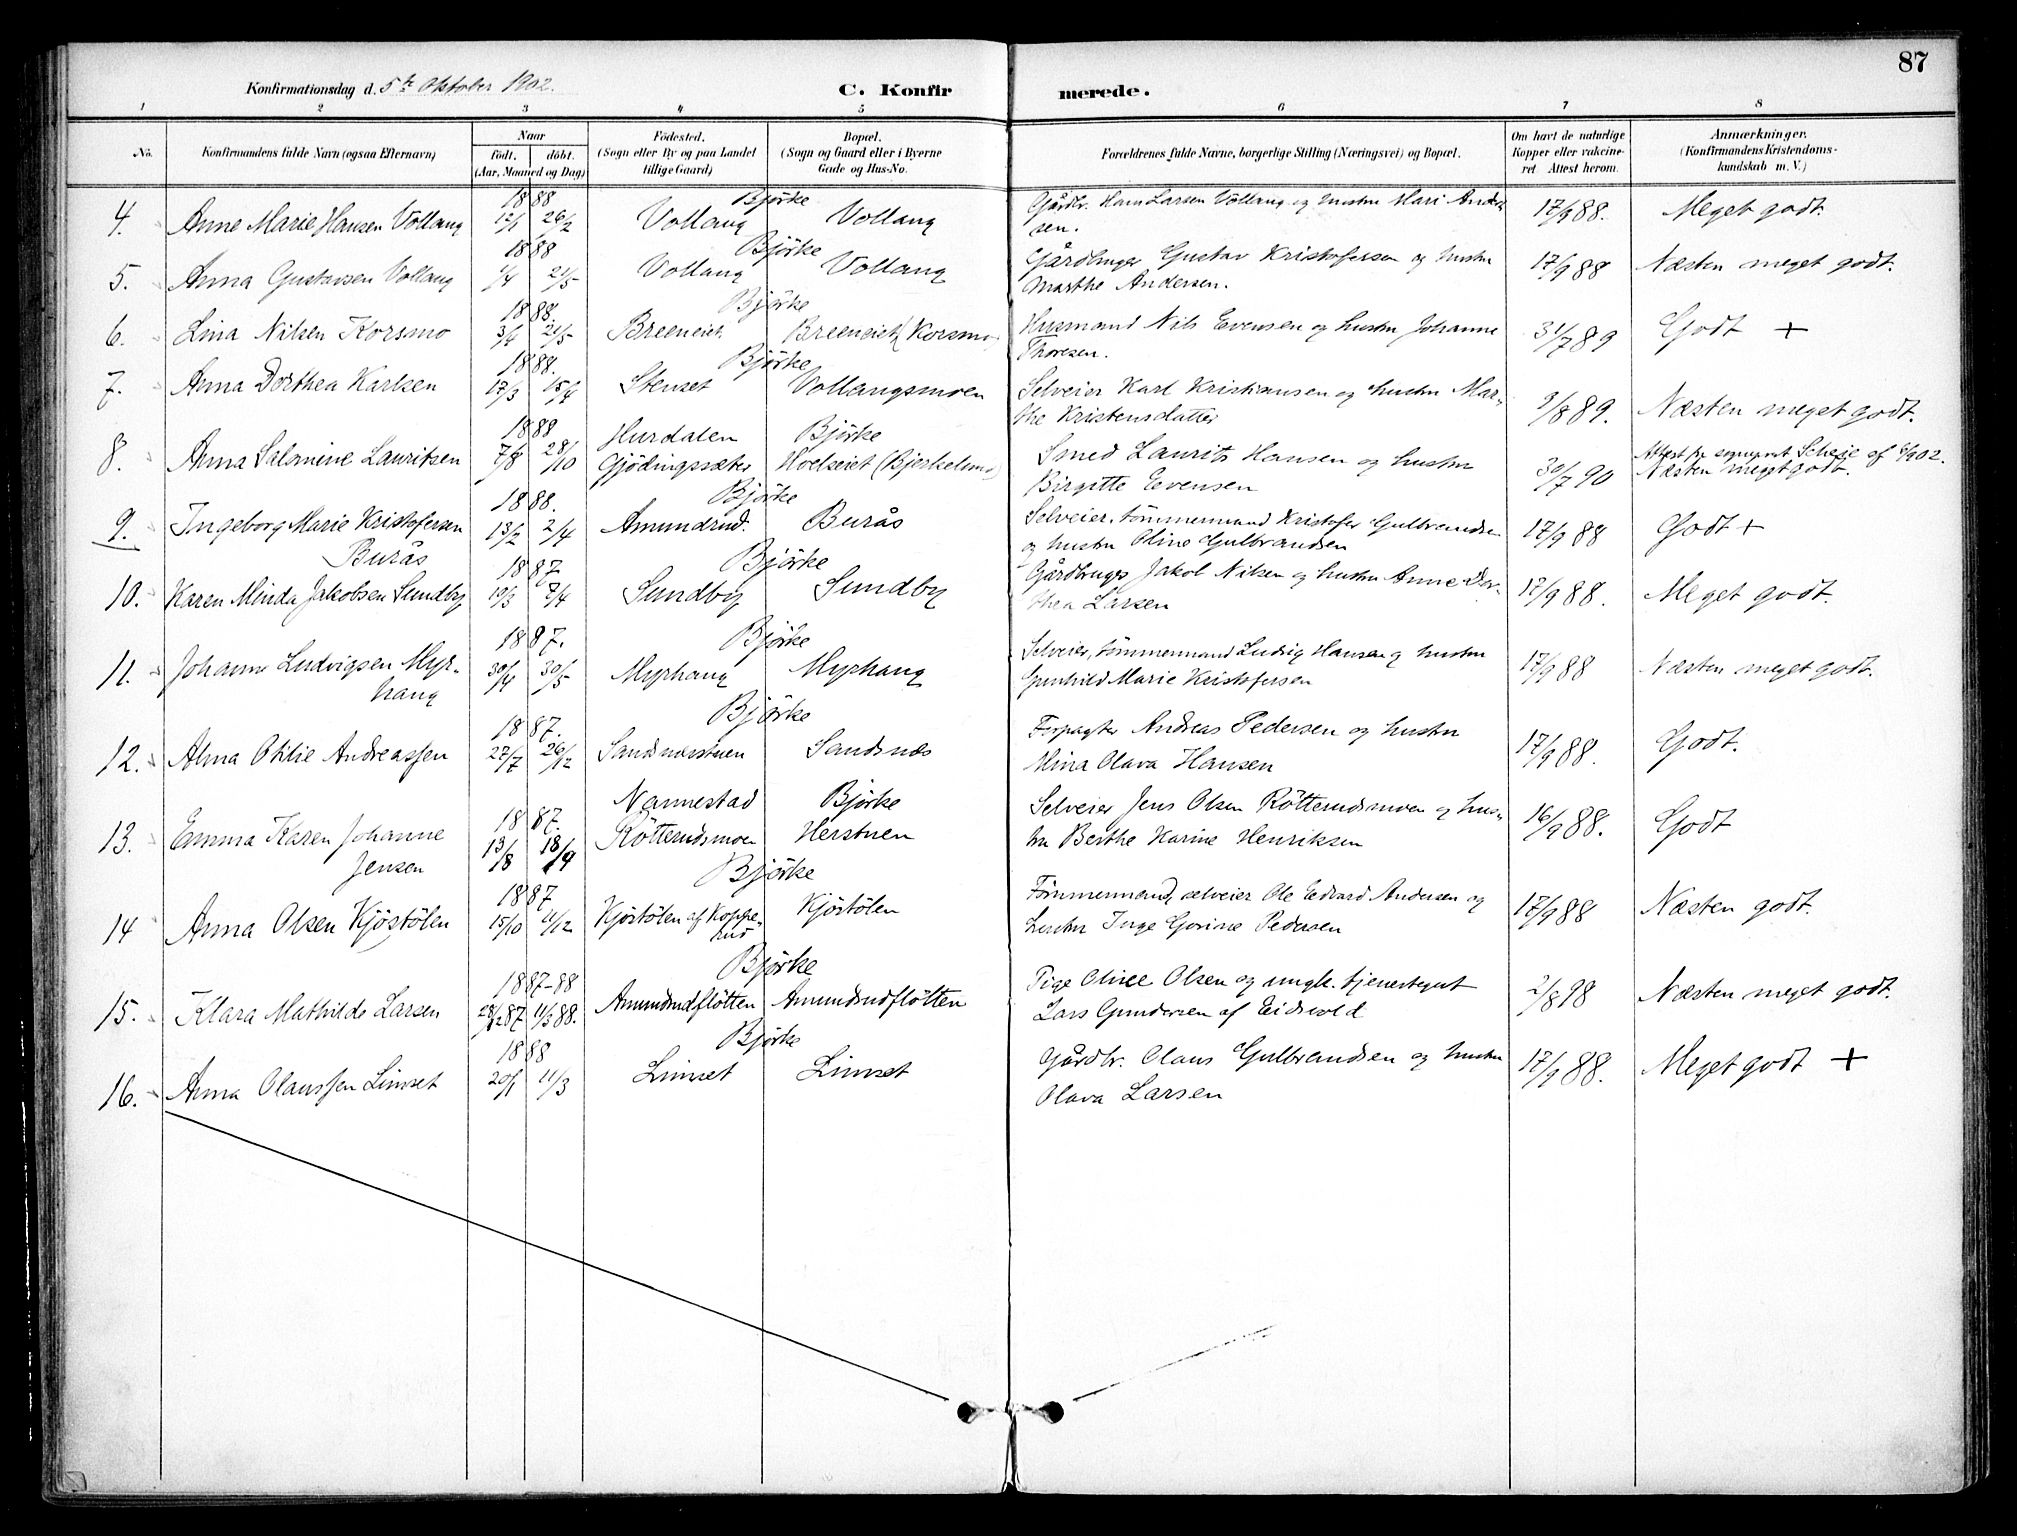 87
Konfirmationsdag d. 5te Oktober 1902.
C. Konfirmerede.
1 2 3 4 5 6 7 8
No.
Konfirmandens fulde Navn (ogsaa Efternavn)
Naar
födt. döbt.
(Aar, Maaned og Dag)
Födested.
(Sogn eller By og paa Landet
tillige Gaard)
Bopæl.
(Sogn og Gaard eller i Byerne
Gade og Hus-No.
Forældrenes fulde Navne, borgerlige Stilling (Næringsvei) og Bopæl.
Om havt de naturlige
Kopper eller vakcine-
ret. Attest herom.
Anmærkninger.
(Konfirmandens Kristendoms-
kundskab m. V.)
1888 Björke
4. Anne Marie Hansen Vollang 12/1 26/2 Vollang Vollang Gårdbr. Hans Larsen Vollang og hustru Mari Ander-
sen. 17/9 88. Meget godt.
1888 Björke
5. Anna Gustavsen Vollang 1/4 21/5 Vollang Vollang Gårdbruger Gustav Kristofersen og hustru
Marthe Andersen. 17/9 88 Næsten meget godt.
1888. Björke
6. Lina Nilsen Korsmo 3/4 21/5 Breeneiet. Breeneiet (Korsmo) Husmand Nils Evensen og hustru Johanne
Thoresen. 31/7 89 Godt +
1888. Björke
7. Anna Dorthea Karlsen 17/3 15/4 Stenset Vollangsmoen Selveier Karl Kristiansen og hustru Mar-
the Kristensdatter 9/8 89. Næsten meget godt.
1888 Hurdalen Björke
8. Anna Salomine Lauritsen 7/8 28/10 Gjödingssæter Hoelseiet (Bjerkelund) Smed Laurits Hansen og hustru
Birgitte Evensen 30/7 90 Attest fra sogneprest Scheie af 902.
Næsten meget godt.
1888. Björke
9. Ingeborg Marie Kristofersen 13/2 2/4 Amundrud. Burås Selveier, tömmermand Kristofer Gulbrandsen
Burås og hustru Oline Gulbrandsen 17/9 88 Godt +
1887 Björke
10. Karen Minda Jakobsen Sundby 19/3 7/4 Sundby Sundby Gårdbruger Jakob Nilsen og hustru Anne Dor-
thea Larsen 17/9 88. Meget godt.
1887. Björke
11. Johanne Ludvigsen Myr-
haug 30/4 30/5 Myrhaug Myrhaug Selveier, tömmermand Ludvig Hansen og hustru
Gunhild Marie Kristofersen 17/9 88 Næsten meget godt.
1887. Björke
12. Alma Otilie Andreassen 27/7 26/12 Sandsnæsstuen Sandsnæs Forpagter Andreas Pedersen og hustru
Mina Olava Hansen 17/9 88. Godt.
1887. Nannestad Björke
13. Emma Karen Johanne
Jensen 13/8 18/9 Rötterudsmoen Herstuen Selveier Jens Olsen Rötterudsmoen og hus-
tru Berthe Karine Henriksen 16/9 88. Godt
1887 Björke
14 Anna Olsen Kjöstölen 15/10 11/12 Kjöstölen af Koppe-
rud Kjöstölen Tömmermand, selveier Ole Edvard Andersen og
hustru Inge Gorine Pedersen 17/9 88 Næsten godt.
1887-88 Björke
15. Klara Mathilde Larsen 28/12 87 11/3 88. Amundrudflötten Amundrudflötten Pige Oline Olsen og ungk. tjenestegut
Lars Gundersen af Eidsvold 2/8 98 Næsten meget godt.
1888 Björke
16. Anna Olaussen Limset 20/1 11/3 Limset Limset Gårdbr. Olaus Gulbrandsen og hustru
Olava Larsen 17/9 88. Meget godt +